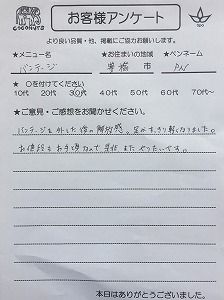 COCONUTS
お客様アンケート
spa
より良い品質・他、掲載にご協力お願いします。
★メニュー名 ★お住まいの地域 ★ペンネーム
バンテージ 豊橋 市 PN
★ ○を付けてください
10代 20代 30代 40代 50代 60代 70代～
★ご意見・ご感想をお聞かせください。
バンテージを外した後の解放感。足がすっきり軽くなりました。
お値段もお手頃なので是非またやりたいです。
本日はありがとうございました。